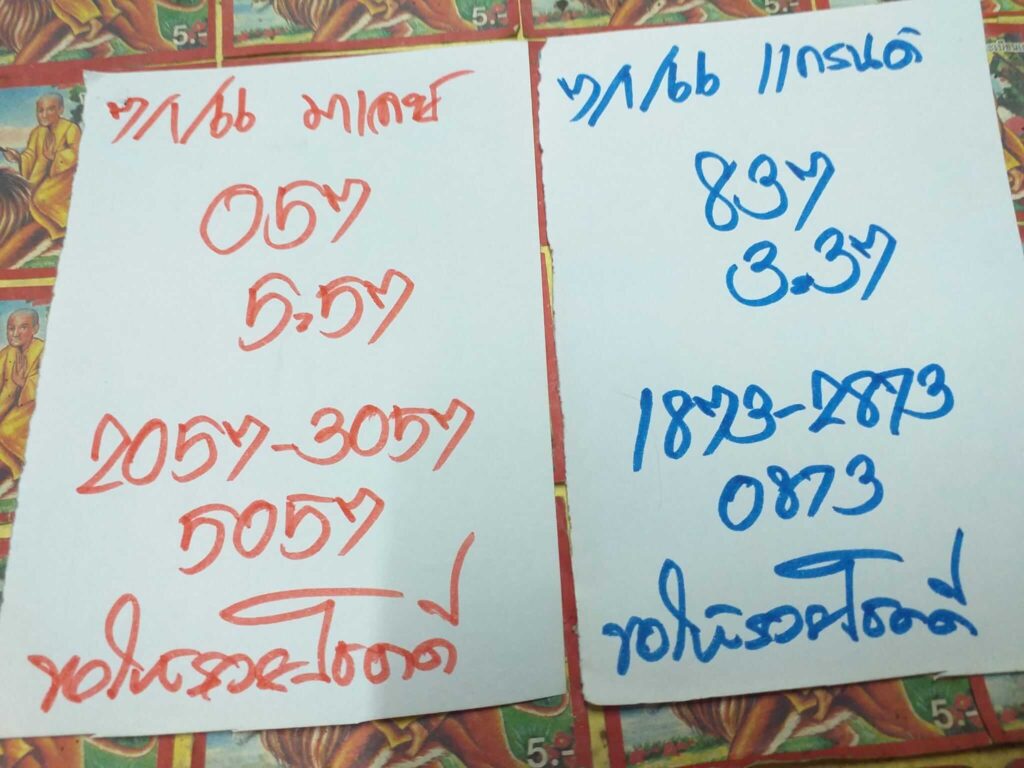 7/1/66 มาเลย์
057
5.57
2057-3057
5057
ขอให้รวยโชคดี
7/1/66 แกรนด์
837
3.37
1873-2873
0873
ขอให้รวยโชคดี
5.-
5.-
5.-
5.-